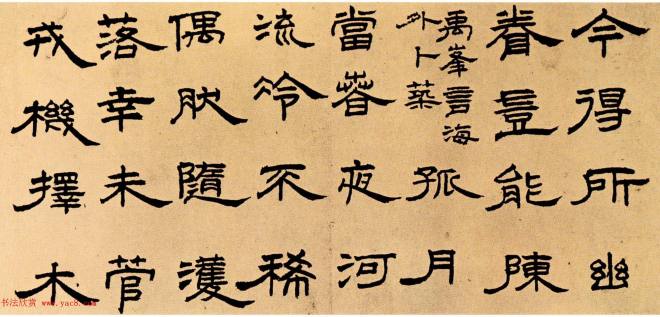 今得所幽
眷豈能陳
禹峯言海
外卜築
孤月
當春夜河
流冷不稀
偶肰隨濩
落幸未菅
戎機擇木
书法欣赏 www.yac8.com